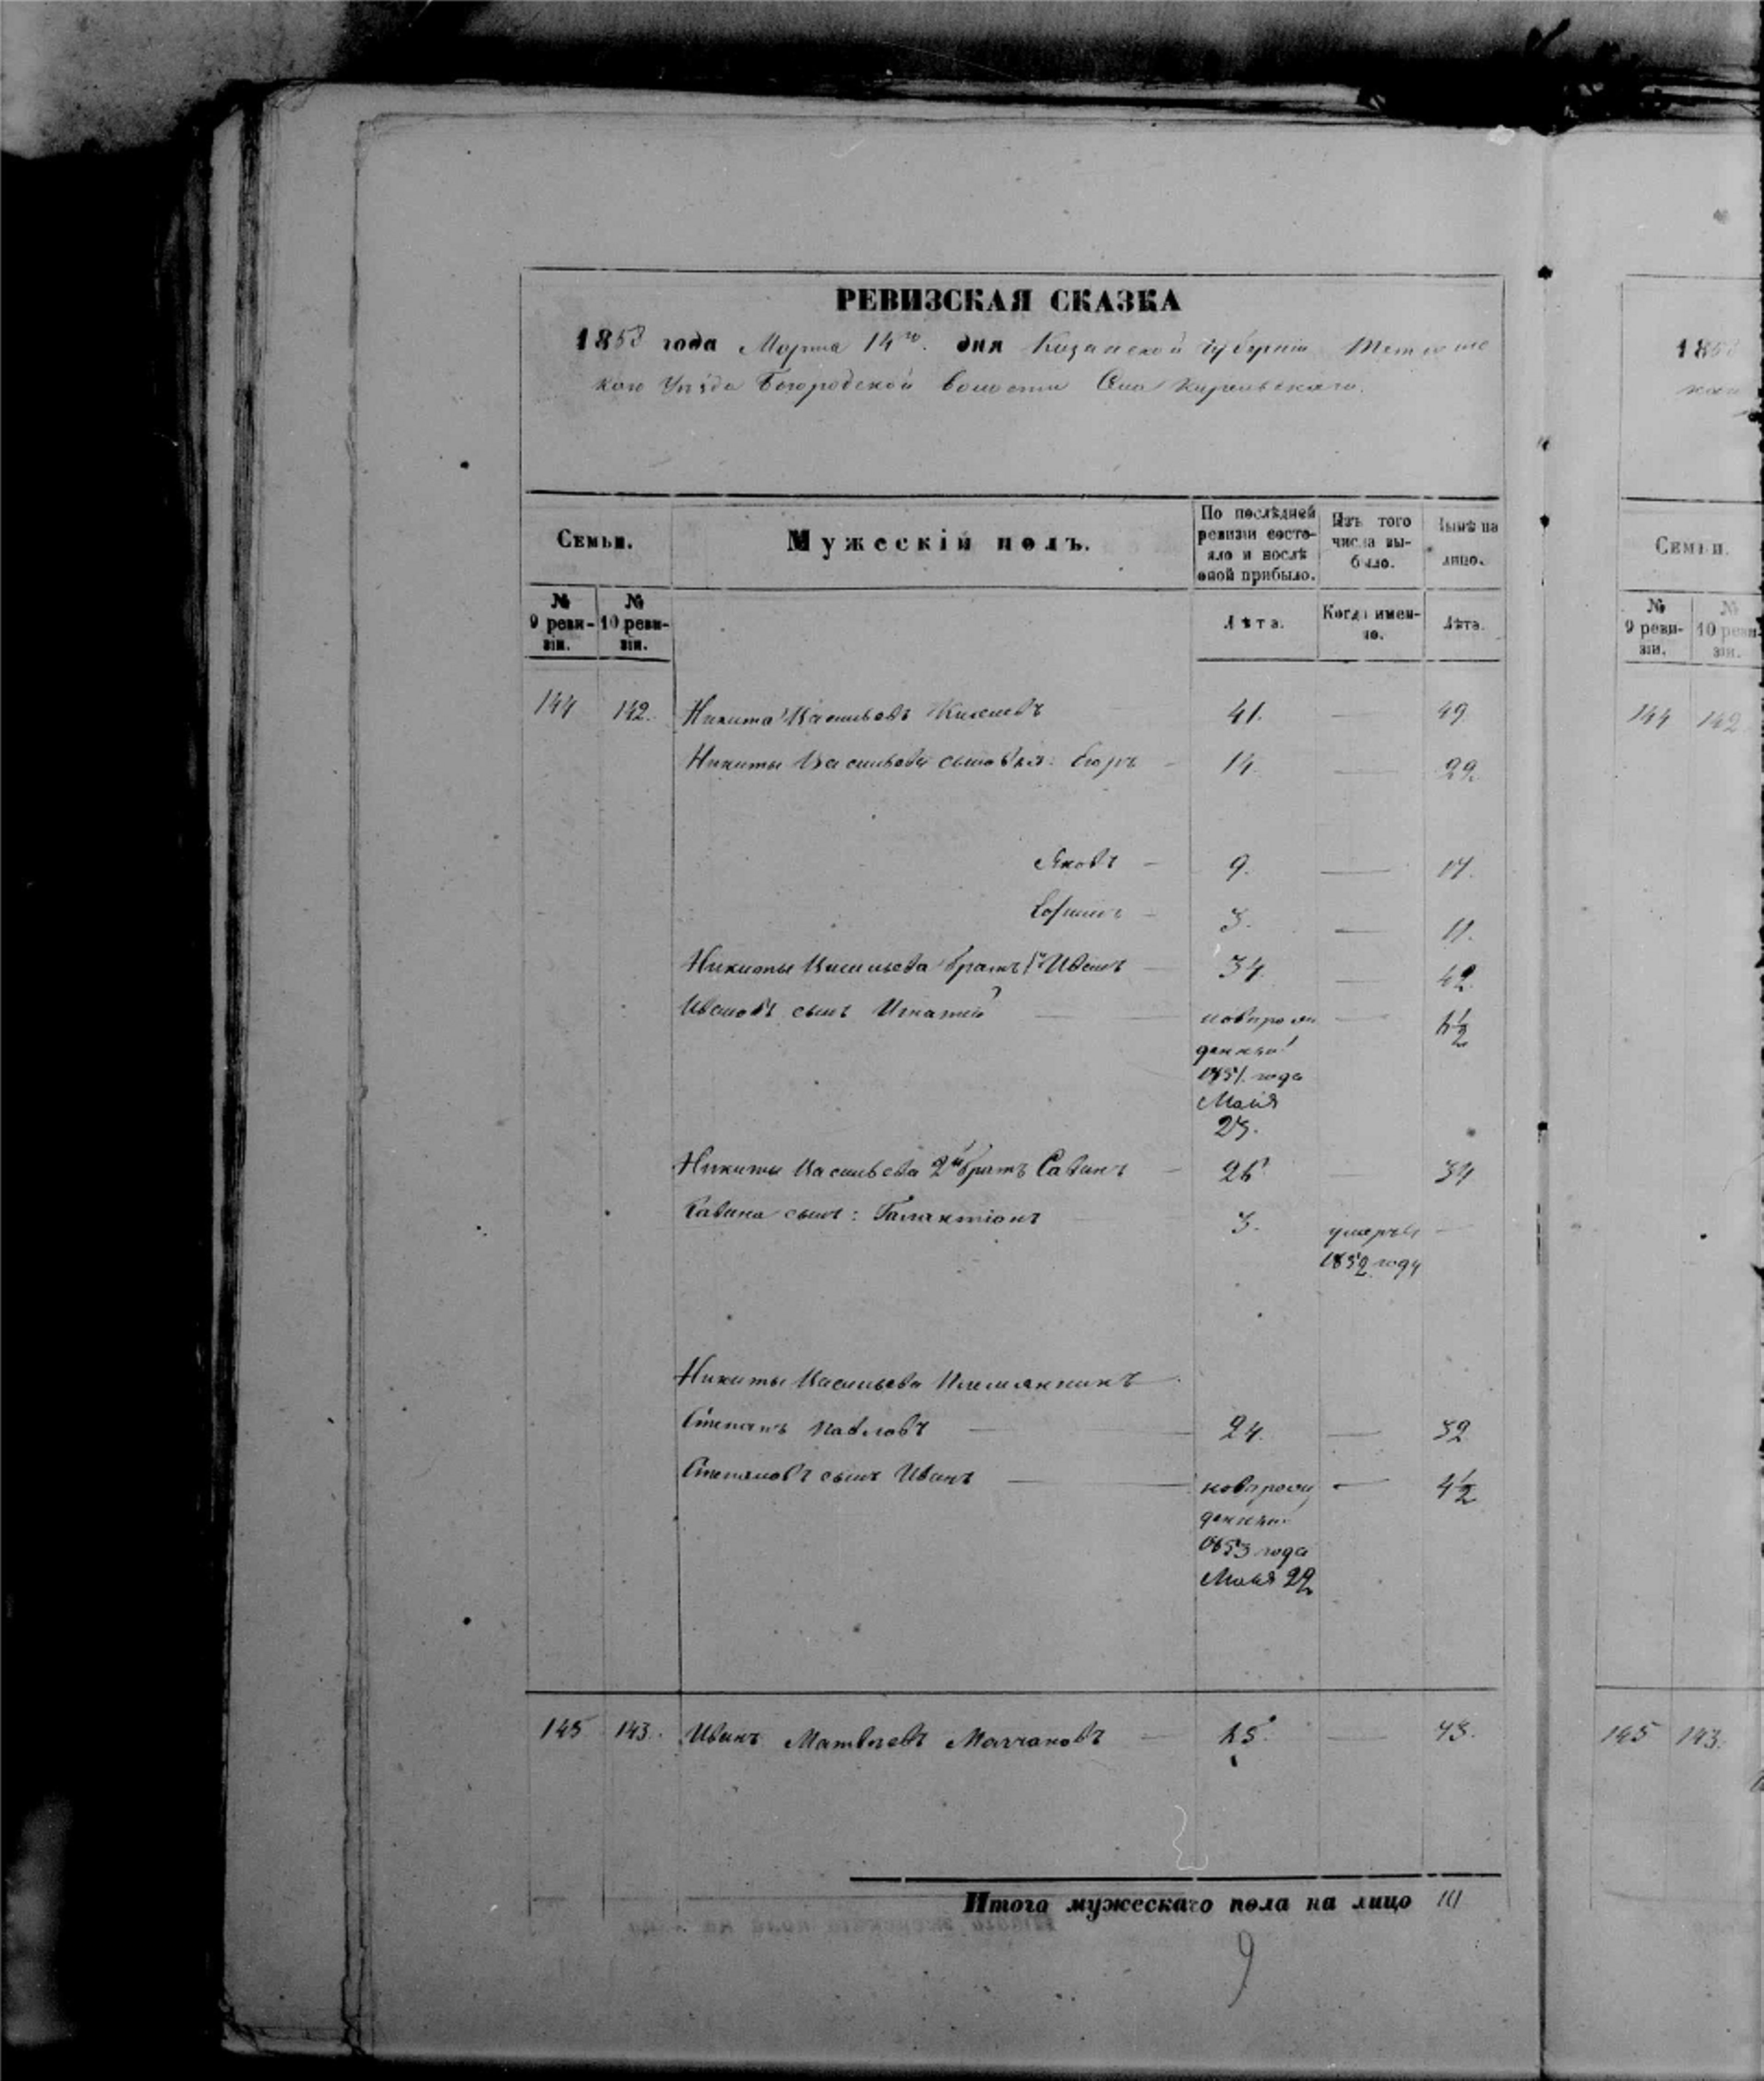 РЕВИЗСКАЯ СКАЗКА
1858 года Марта 14го. дня Казанской губерніи Тетюшс
каго Уѣзда Богородской волости Села Кирельскаго.
Семьи.
Мужескій полъ.
По послѣдней ревизіи состо-
яло и послѣ оной прибыло.
Изъ того числа вы-
было.
Нынѣ на лицо.
№ 9 реви-
зіи.
№ 10 реви-
зіи.
Лѣта.
Когда имен-
но.
Лѣта.
144 142. Никита Васильевъ 41. — 49
Никиты Васильева сыновья: Егоръ 14. — 22
Яковъ — 9. — 17.
3. — 11.
Никиты Васильева братъ 1й Иванъ — 34. — 42.
Ивановъ сынъ Игнатій — новорож — 6½
денный
1851 года
Маія
23.
Никиты Васильева 2й братъ Савинъ — 26 — 34
Савина сынъ: Галактіонъ 3. умеръ —
1852 году
Никиты Васильева Племянникъ
Степанъ Павловъ — 24. — 32
Степановъ сынъ Иванъ — новорож — 4½
денный
1853 года
Маія 22
145 143. Иванъ Матвѣевъ Молчановъ — — 43.
Итого мужескаго пола на лицо
9
1858
Семьи.
№ 9 реви-
зіи.
№ 10 реви-
зіи.
144 142
145 143.